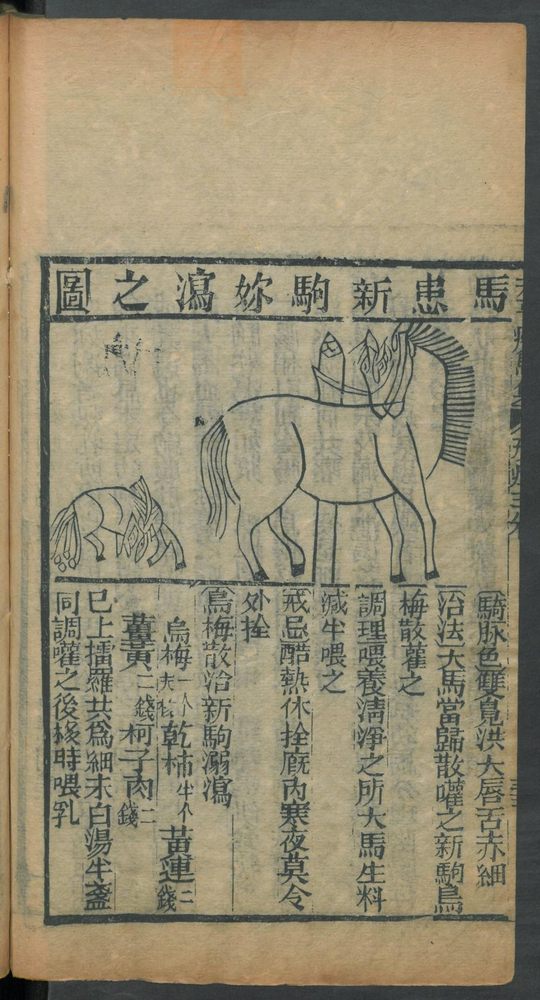 馬患新駒妳瀉之圖
騐脉色雙鳧洪大唇舌赤細
治法大馬當歸散嚾之新駒烏
梅散嚾之
調理喂養清淨之所大馬生料
減半喂之
戒忌酷熱休拴廐內寒夜莫令
外拴
烏梅散治新駒溺瀉
烏梅一个去核 乾柿半个 黃連二錢
薑黃二錢 柯子肉二錢
已上擂羅共為細末白湯半盞
同調嚾之後移時喂乳